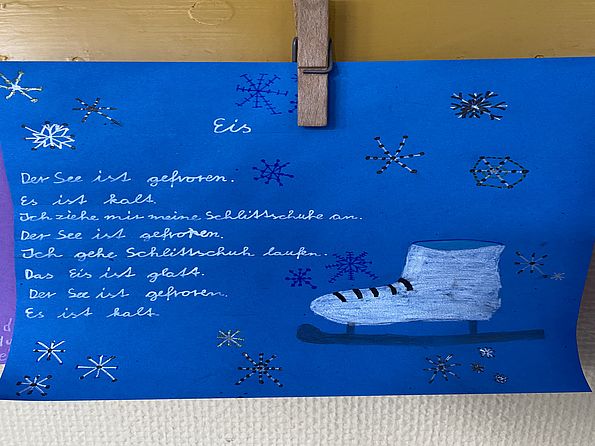 Eis
Der See ist gefroren.
Es ist kalt.
Ich ziehe mir meine Schlittschuhe an.
Der See ist gefroren.
Ich gehe Schlittschuh laufen.
Das Eis ist glatt.
Der See ist gefroren.
Es ist kalt